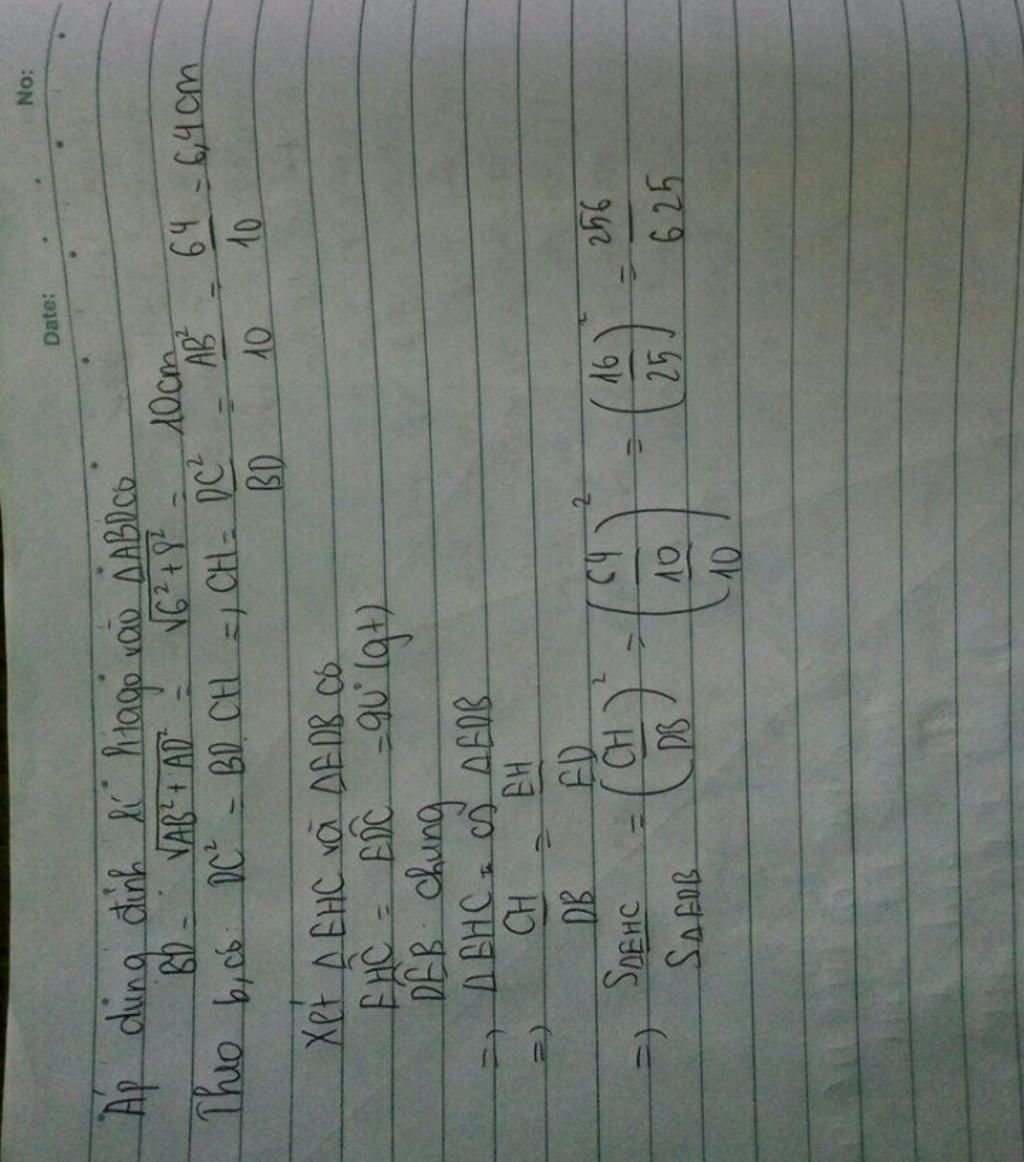 No:
Date:
Áp dụng định lí Pitago vào ΔABD có
BD = √AB² + AD² = √6² + 8² = 10cm
Theo b, có: DC² = BD.CH =) CH = DC²/BD = AB²/10 = 64/10 = 6,4cm
Xét ΔEHC và ΔEDB có
EHC = EDC = 90° (gt)
DEB chung
=) ΔEHC ∽ ΔEDB
=) CH/DB = EH/ED
=) SΔEHC/SΔEDB = (CH/DB)² = (64/10/10)² = (16/25)² = 256/625